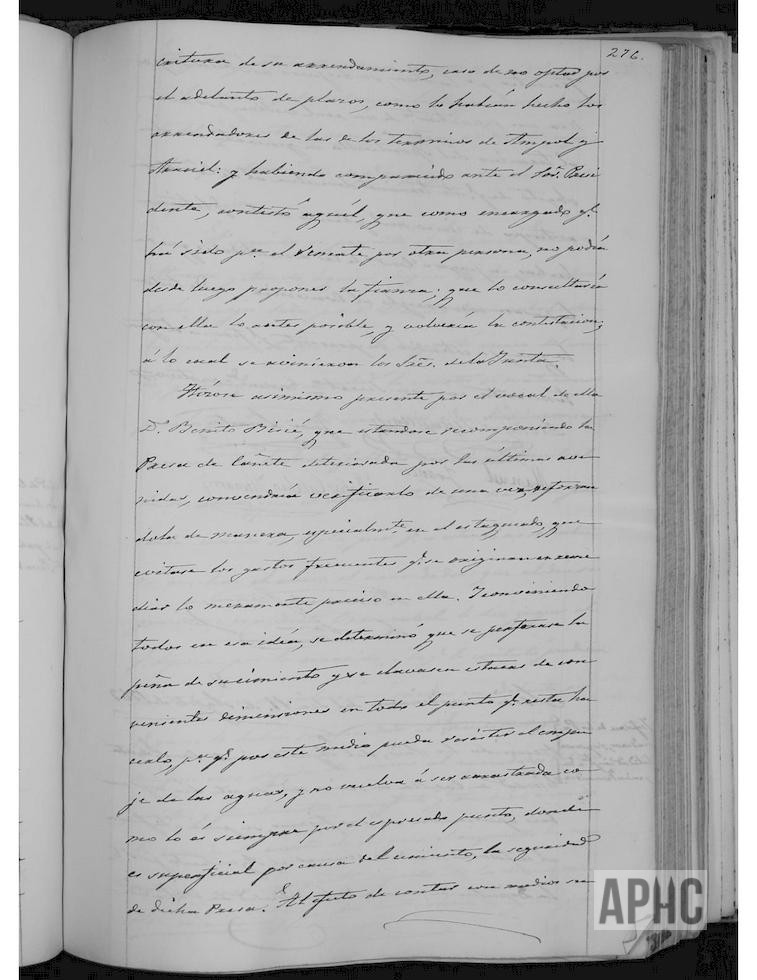 276.
critura de su arrendamiento, caso de no optar por
el adelanto de plazos, como lo habían hecho los
arrendadores de las de los terminos de Ampol y
Araciel: y habiendo comparecido ante el Sor. Presi
dente, contestó aquél, que como encargado qe.
há sido pa. el remate por otra persona, no podía
desde luego proponer la fianza; que lo consultaría
con ella lo antes posible, y volvería la contestacion,
á lo cual se avinieron los Sres. de la Junta.
Hízose asimismo presente por el vocal de ella
D. Benito Birié, que estandose recomponiendo la
Presa de Cañete deteriorada por las últimas ave
nidas, convendría verificarlo de una vez, reforzan
dola de manera, especialmte. en el estaqueado, que
evitase los gastos frecuentes qe. se originan en reme
diar lo meramente preciso en ella. Y conviniendo
todos en esa idéa, se determinó que se perforase la
peña de su cimiento y se clavasen estacas de con
venientes dimensiones en todo el punto qe. resta ha
cerlo, pa. qe. por este medio pueda resistir el empu
je de las aguas, y no vuelva á ser arrastrada co
mo lo és siempre por el espresado punto, donde
es superficial por causa del cimiento, la seguridad
de dicha Presa. Al efecto de contar con medios su
APHC